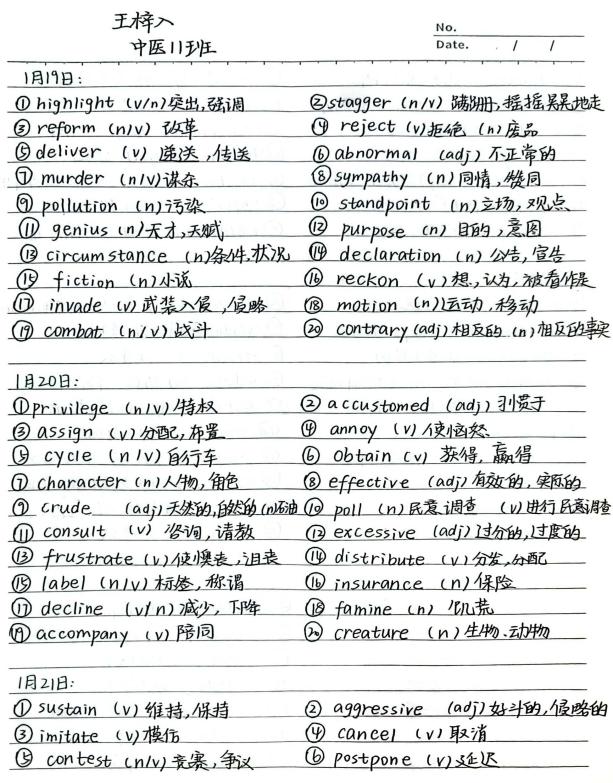 王梓入
中医11班
No.
Date. / /
1月19日:
① highlight (v/n) 突出,强调 ② stagger (n/v) 蹒跚,摇摇晃晃地走
③ reform (n/v) 改革 ④ reject (v)拒绝 (n)废品
⑤ deliver (v) 递送,传送 ⑥ abnormal (adj) 不正常的
⑦ murder (n/v)谋杀 ⑧ sympathy (n)同情,赞同
⑨ pollution (n)污染 ⑩ standpoint (n)立场,观点
⑪ genius (n)天才,天赋 ⑫ purpose (n)目的,意图
⑬ circumstance (n)条件,状况 ⑭ declaration (n) 公告,宣告
⑮ fiction (n)小说 ⑯ reckon (v)想,认为,被看作是
⑰ invade (v)武装入侵,侵略 ⑱ motion (n)运动,移动
⑲ combat (n/v)战斗 ⑳ contrary (adj)相反的 (n)相反的事实
1月20日:
① privilege (n/v)特权 ② accustomed (adj)习惯于
③ assign (v)分配,布置 ④ annoy (v)使恼怒
⑤ cycle (n/v)自行车 ⑥ obtain (v) 获得,赢得
⑦ character (n)人物,角色 ⑧ effective (adj)有效的,实际的
⑨ crude (adj)天然的,自然的 (n)石油 ⑩ poll (n)民意调查 (v)进行民意调查
⑪ consult (v) 咨询,请教 ⑫ excessive (adj)过分的,过度的
⑬ frustrate (v)使懊丧,沮丧 ⑭ distribute (v)分发,分配
⑮ label (n/v)标签,称谓 ⑯ insurance (n)保险
⑰ decline (v/n)减少,下降 ⑱ famine (n) 饥荒
⑲ accompany (v)陪同 ⑳ creature (n)生物、动物
1月21日:
① sustain (v)维持,保持 ② aggressive (adj)好斗的,侵略的
③ imitate (v)模仿 ④ cancel (v)取消
⑤ contest (n/v)竞赛,争议 ⑥ postpone (v)延迟